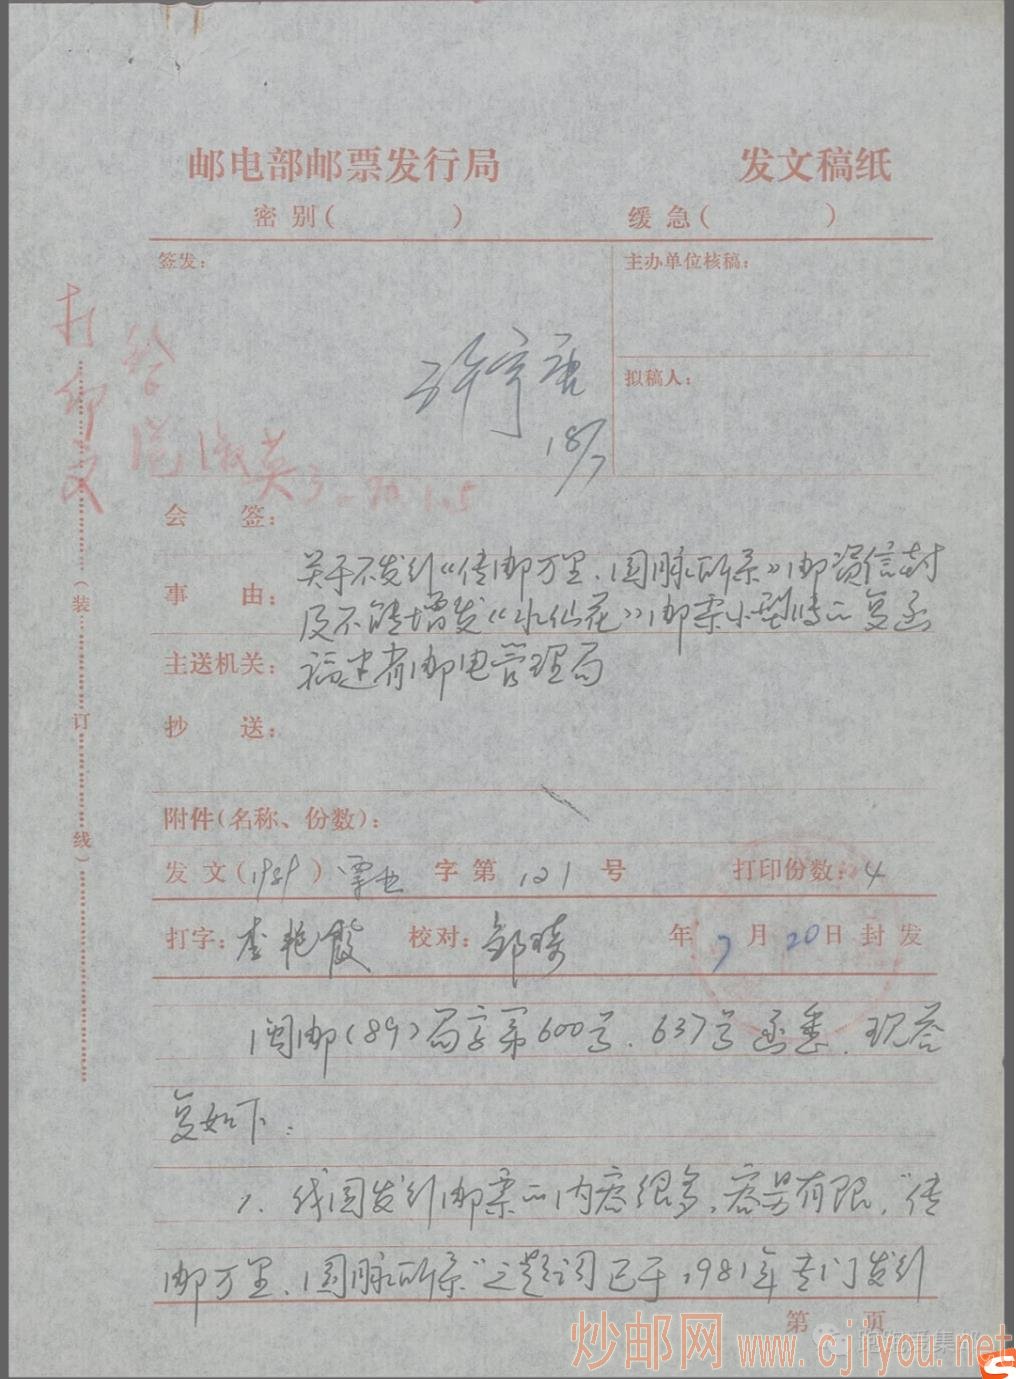 邮电部邮票发行局 发文稿纸
密 别( ) 缓 急( )
签发: 主办单位核稿:
许宇唐
18/7
拟稿人:
打印文
淑英
会 签:
事 由: 关于不发行《传邮万里、国脉所系》邮资信封
及不能增发《水仙花》邮票小型张的复函
主送机关: 福建省邮电管理局
抄 送:
附件(名称、份数):
发 文(1989)票业 字 第 121 号 打印份数: 4
打字: 李艳霞 校对: 邹琦 年 7 月 20 日 封 发
闽邮(89)局字第600号、637号函悉,现答
复如下:
1. 我国发行邮票的内容很多,容量有限,“传
邮万里、国脉所系”之题词已于1981年专门发行
第 页
(装 订 线)
炒邮网 www.cjiyou.net